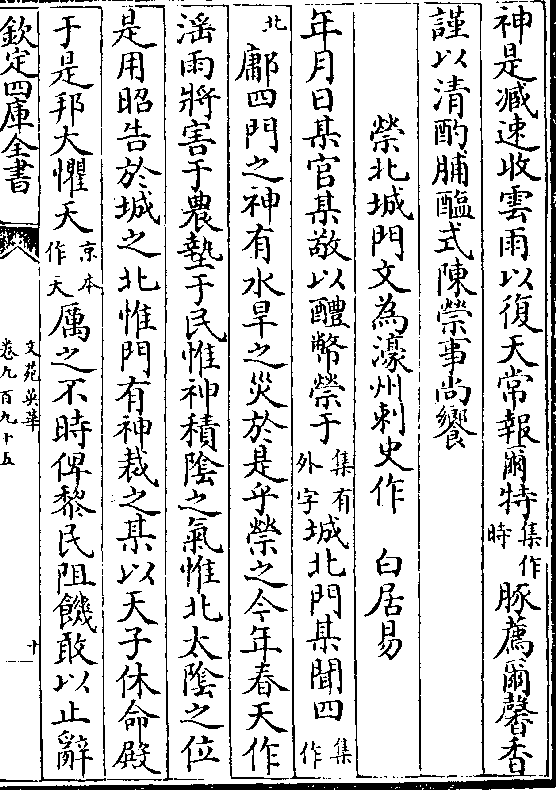 神是臧速收雲雨以復天常報爾特集作時豚薦爾馨香
謹以清酌脯醢式陳禜事尚饗
禜北城門文為濠州刺史作　白居易
年月日某官某敬以醴幣禜于集有外字城北門某聞四集作
北鄘四門之神有水旱之災於是乎禜之今年春天作
滛雨將害于農墊于民惟神積隂之氣惟北太隂之位
是用昭告於城之北惟門有神裁之某以天子休命殿
于是邦大懼天京本作天厲之不時俾黎民阻饑敢以止辭
欽定四庫全書
文苑英華
卷九百九十五
十